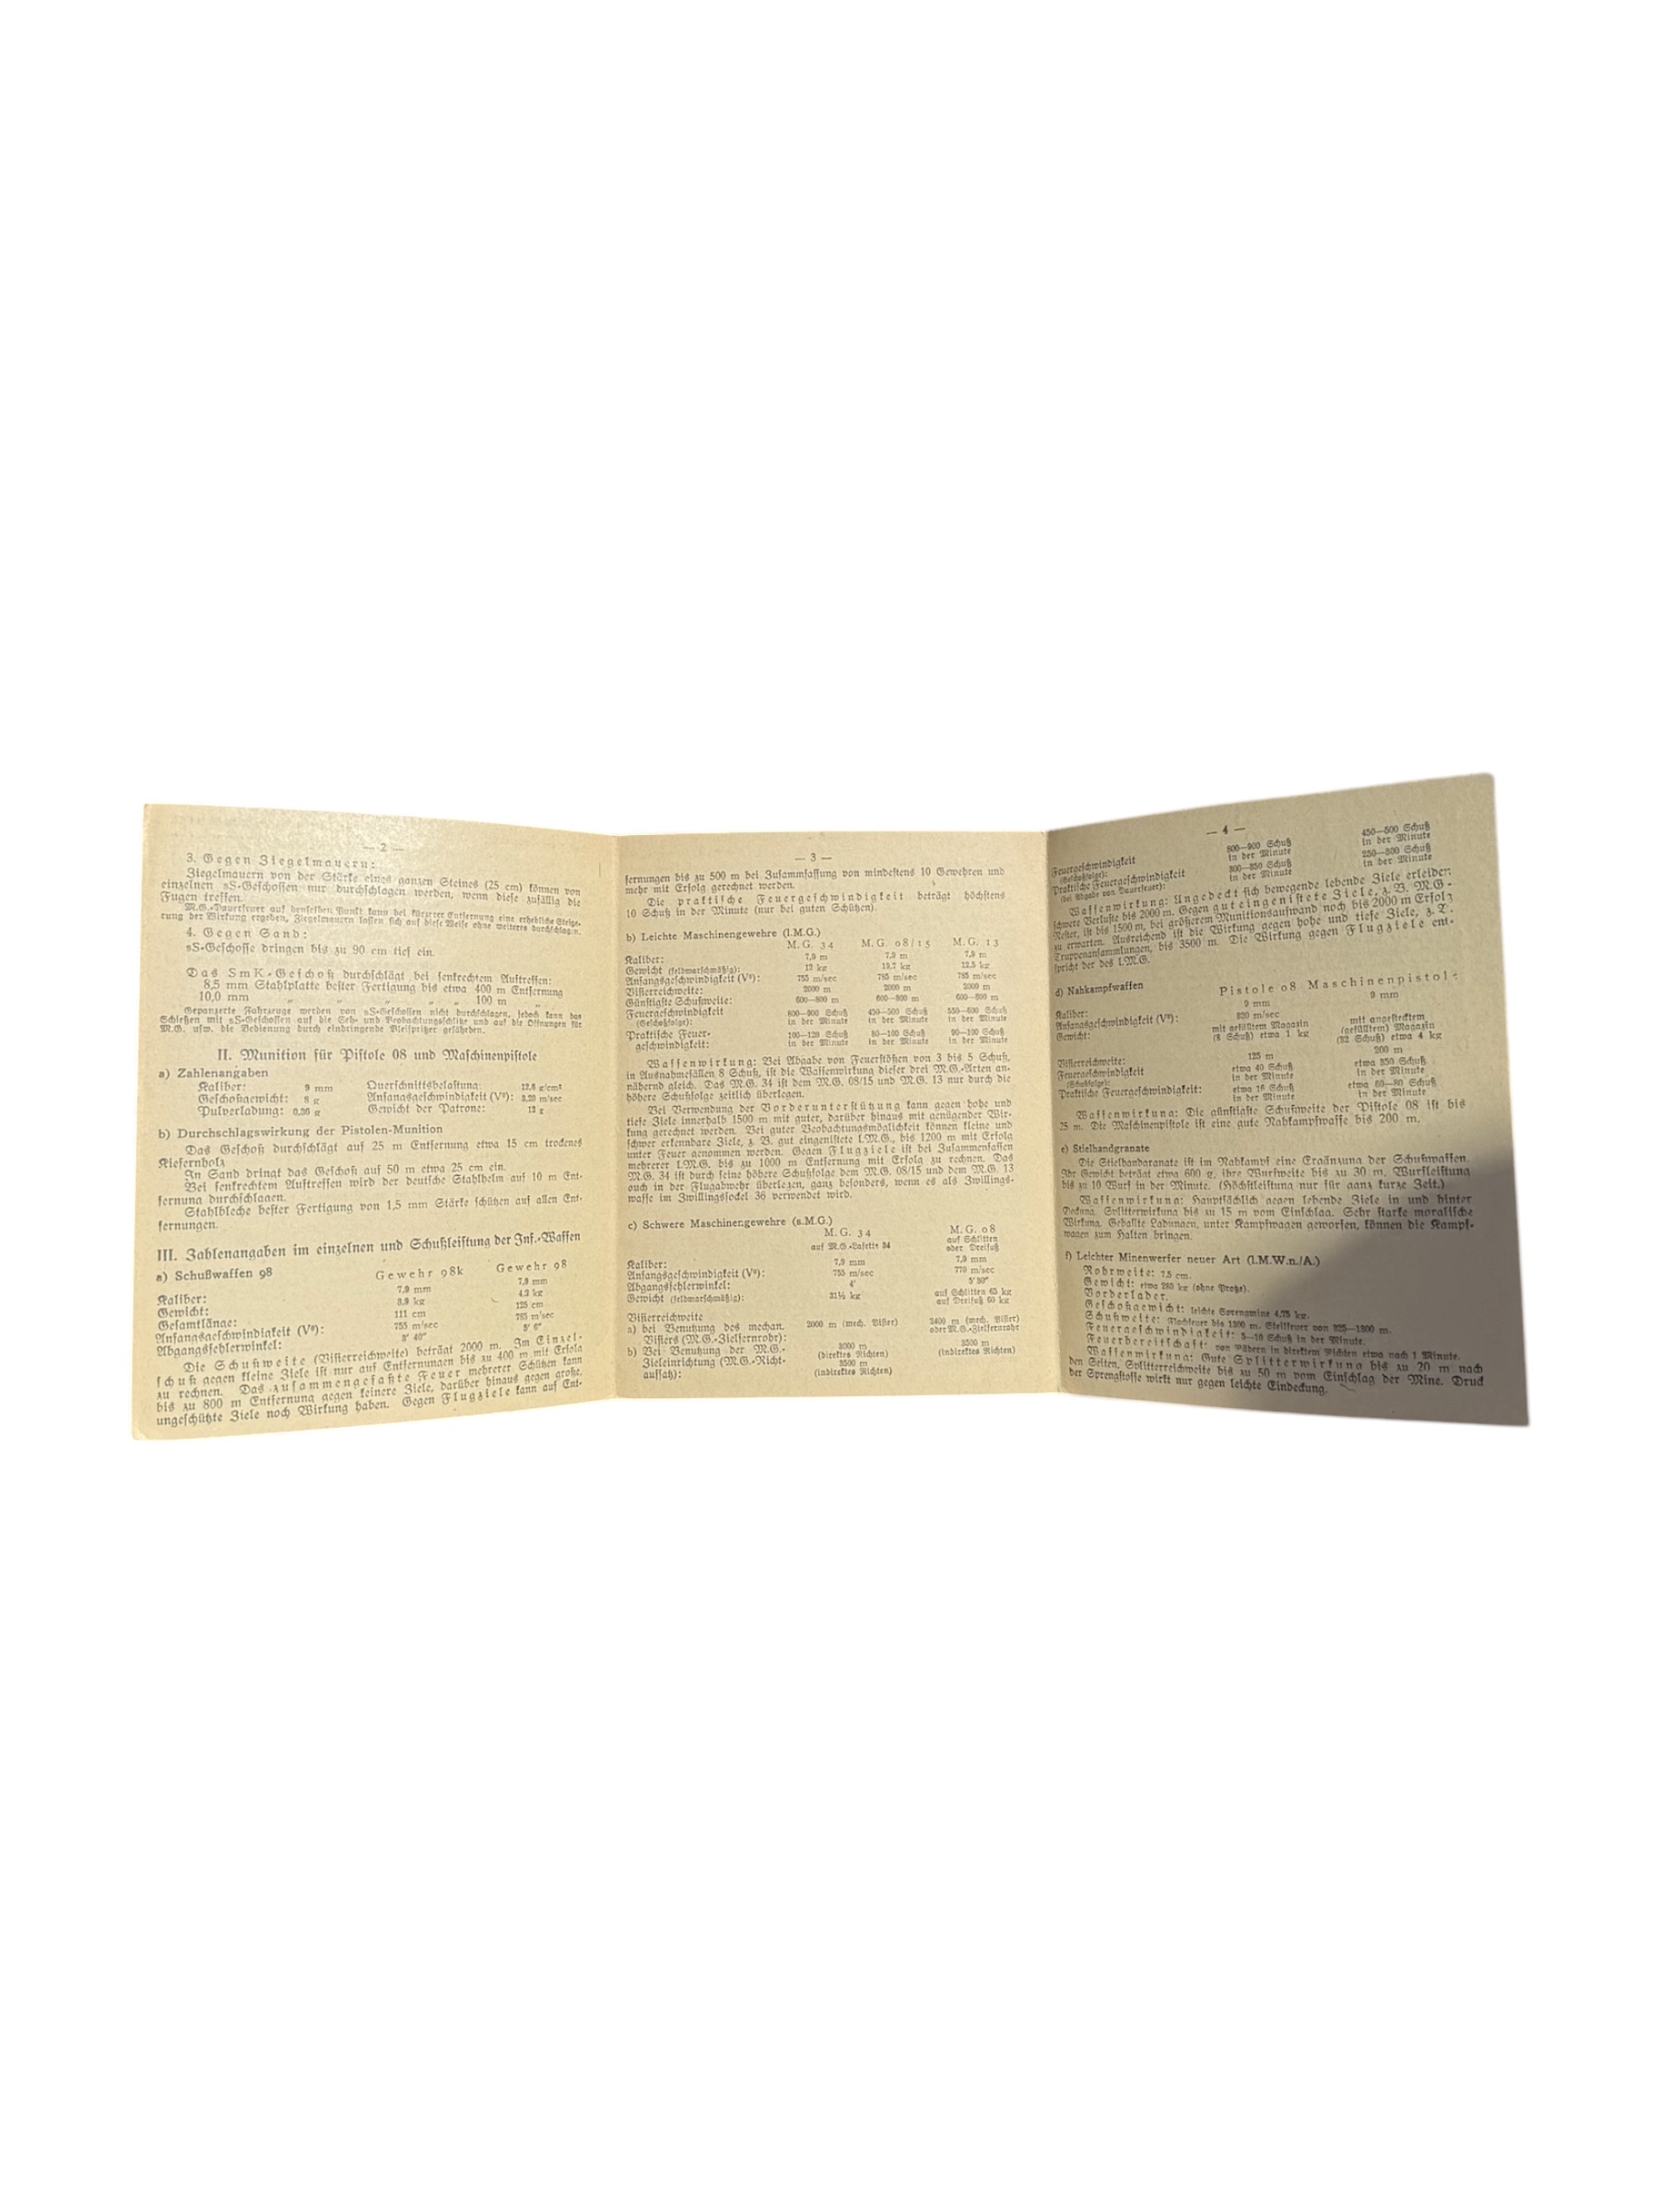 — 2 —
3. Gegen Ziegelmauern:
Ziegelmauern von der Stärke eines ganzen Steines (25 cm) können von
einzelnen sS-Geschossen nur durchschlagen werden, wenn diese zufällig die
Fugen treffen.
M.G.-Dauerfeuer auf denselben Punkt kann bei kürzerer Entfernung eine erhebliche Steige-
rung der Wirkung ergeben, Ziegelmauern lassen sich auf diese Weise ohne weiteres durchschlagen.
4. Gegen Sand:
sS-Geschosse dringen bis zu 90 cm tief ein.
Das SmK-Geschoß durchschlägt bei senkrechtem Auftreffen:
8,5 mm Stahlplatte bester Fertigung bis etwa 400 m Entfernung
10,0 mm „ „ „ „ „ 100 m „
Gepanzerte Fahrzeuge werden von sS-Geschossen nicht durchschlagen, jedoch kann das
Schießen mit sS-Geschossen auf die Seh- und Beobachtungsschlitze und auf die Öffnungen für
M.G. usw. die Bedienung durch eindringende Bleispritzer gefährden.
II. Munition für Pistole 08 und Maschinenpistole
a) Zahlenangaben
Kaliber: 9 mm Querschnittsbelastung: 12,6 g/cm²
Geschoßgewicht: 8 g Anfangsgeschwindigkeit (V⁰): 3,20 m/sec
Pulverladung: 0,36 g Gewicht der Patrone: 12 g
b) Durchschlagswirkung der Pistolen-Munition
Das Geschoß durchschlägt auf 25 m Entfernung etwa 15 cm trockenes
Kiefernholz
In Sand dringt das Geschoß auf 50 m etwa 25 cm ein.
Bei senkrechtem Auftreffen wird der deutsche Stahlhelm auf 10 m Ent-
fernung durchschlagen.
Stahlbleche bester Fertigung von 1,5 mm Stärke schützen auf allen Ent-
fernungen.
III. Zahlenangaben im einzelnen und Schußleistung der Inf.-Waffen
a) Schußwaffen 98 Gewehr 98k Gewehr 98
Kaliber: 7,9 mm 7,9 mm
Gewicht: 3,9 kg 4,2 kg
Gesamtlänge: 111 cm 125 cm
Anfangsgeschwindigkeit (V⁰): 755 m/sec 785 m/sec
Abgangsfehlerwinkel: 3' 40" 5' 6"
Die Schußweite (Visierreichweite) beträgt 2000 m. Im Einzel-
schuß gegen kleine Ziele ist nur auf Entfernungen bis zu 400 m mit Erfolg
zu rechnen. Das zusammengefaßte Feuer mehrerer Schützen kann
bis zu 800 m Entfernung gegen kleinere Ziele, darüber hinaus gegen große,
ungeschützte Ziele noch Wirkung haben. Gegen Flugziele kann auf Ent-
— 3 —
fernungen bis zu 500 m bei Zusammfassung von mindestens 10 Gewehren und
mehr mit Erfolg gerechnet werden.
Die praktische Feuergeschwindigkeit beträgt höchstens
10 Schuß in der Minute (nur bei guten Schützen).
b) Leichte Maschinengewehre (l.M.G.)
M.G. 34 M.G. 08/15 M.G. 13
Kaliber: 7,9 m 7,9 m 7,9 m
Gewicht (feldmarschmäßig): 12 kg 19,7 kg 12,5 kg
Anfangsgeschwindigkeit (V⁰): 755 m/sec 785 m/sec 785 m/sec
Visierreichweite: 2000 m 2000 m 2000 m
Günstigste Schußweite: 600—800 m 600—800 m 600—800 m
Feuergeschwindigkeit 800—900 Schuß 450—500 Schuß 550—600 Schuß
(Geschoßfolge): in der Minute in der Minute in der Minute
Praktische Feuer- 100—120 Schuß 80—100 Schuß 90—100 Schuß
geschwindigkeit: in der Minute in der Minute in der Minute
Waffenwirkung: Bei Abgabe von Feuerstößen von 3 bis 5 Schuß,
in Ausnahmefällen 8 Schuß, ist die Waffenwirkung dieser drei M.G.-Arten an-
nähernd gleich. Das M.G. 34 ist dem M.G. 08/15 und M.G. 13 nur durch die
höhere Schußfolge zeitlich überlegen.
Bei Verwendung der Vorderunterstützung kann gegen hohe und
tiefe Ziele innerhalb 1500 m mit guter, darüber hinaus mit genügender Wir-
kung gerechnet werden. Bei guter Beobachtungsmöglichkeit können kleine und
schwer erkennbare Ziele, z. B. gut eingenistete l.M.G., bis 1200 m mit Erfolg
unter Feuer genommen werden. Gegen Flugziele ist bei Zusammenfassen
mehrerer l.M.G. bis zu 1000 m Entfernung mit Erfolg zu rechnen. Das
M.G. 34 ist durch seine höhere Schußfolge dem M.G. 08/15 und dem M.G. 13
auch in der Flugabwehr überlegen, ganz besonders, wenn es als Zwillings-
waffe im Zwillingssockel 36 verwendet wird.
c) Schwere Maschinengewehre (s.M.G.)
M.G. 34 M.G. 08
auf M.G.-Lafette 34 auf Schlitten
oder Dreifuß
Kaliber: 7,9 mm 7,9 mm
Anfangsgeschwindigkeit (V⁰): 755 m/sec 770 m/sec
Abgangsfehlerwinkel: 4' 5' 30"
Gewicht (feldmarschmäßig): 31½ kg auf Schlitten 65 kg
auf Dreifuß 60 kg
Visierreichweite
a) bei Benutzung des mechan. 2000 m (mech. Visier) 2400 m (mech. Visier)
Visiers (M.G.-Zielfernrohr): oder M.G.-Zielfernrohr
b) Bei Benutzung der M.G.- 3000 m 3500 m
Zieleinrichtung (M.G.-Richt- (direktes Richten) (indirektes Richten)
aufsatz): 3500 m
(indirektes Richten)
— 4 —
Feuergeschwindigkeit 800—900 Schuß 450—500 Schuß
(Geschoßfolge): in der Minute in der Minute
Praktische Feuergeschwindigkeit 300—350 Schuß 250—300 Schuß
(bei Abgabe von Dauerfeuer): in der Minute in der Minute
Waffenwirkung: Ungedeckt sich bewegende lebende Ziele erleiden
schwere Verluste bis 2000 m. Gegen gut eingenistete Ziele, z. B. M.G.-
Nester, ist bis 1500 m, bei größerem Munitionsaufwand noch bis 2000 m Erfolg
zu erwarten. Ausreichend ist die Wirkung gegen hohe und tiefe Ziele, z. B.
Truppenansammlungen, bis 3500 m. Die Wirkung gegen Flugziele ent-
spricht der des l.M.G.
d) Nahkampfwaffen Pistole 08 Maschinenpistole
Kaliber: 9 mm 9 mm
Anfangsgeschwindigkeit (V⁰): 320 m/sec
Gewicht: mit gefülltem Magazin mit angestecktem
(8 Schuß) etwa 1 kg (gefülltem) Magazin
(32 Schuß) etwa 4 kg
Visierreichweite: 125 m 200 m
Feuergeschwindigkeit etwa 40 Schuß etwa 350 Schuß
(Schußfolge): in der Minute in der Minute
Praktische Feuergeschwindigkeit: etwa 16 Schuß etwa 60—80 Schuß
in der Minute in der Minute
Waffenwirkung: Die günstigste Schußweite der Pistole 08 ist bis
25 m. Die Maschinenpistole ist eine gute Nahkampfwaffe bis 200 m.
e) Stielhandgranate
Die Stielhandgranate ist im Nahkampf eine Ergänzung der Schußwaffen.
Ihr Gewicht beträgt etwa 600 g, ihre Wurfweite bis zu 30 m, Wurfleistung
bis zu 10 Wurf in der Minute. (Höchstleistung nur für ganz kurze Zeit.)
Waffenwirkung: Hauptsächlich gegen lebende Ziele in und hinter
Deckung. Splitterwirkung bis zu 15 m vom Einschlag. Sehr starke moralische
Wirkung. Geballte Ladungen, unter Kampfwagen geworfen, können die Kampf-
wagen zum Halten bringen.
f) Leichter Minenwerfer neuer Art (l.M.W.n./A.)
Rohrweite: 7,5 cm.
Gewicht: etwa 285 kg (ohne Protze).
Vorderlader.
Geschoßgewicht: leichte Sprengmine 4,75 kg.
Schußweite: Flachfeuer bis 1300 m. Steilfeuer von 325—1300 m.
Feuergeschwindigkeit: 5—10 Schuß in der Minute.
Feuerbereitschaft: von Rädern in direktem Richten etwa nach 1 Minute.
Waffenwirkung: Gute Splitterwirkung bis zu 20 m nach
den Seiten, Splitterreichweite bis zu 50 m vom Einschlag der Mine. Druck
der Sprengstoffe wirkt nur gegen leichte Eindeckung.